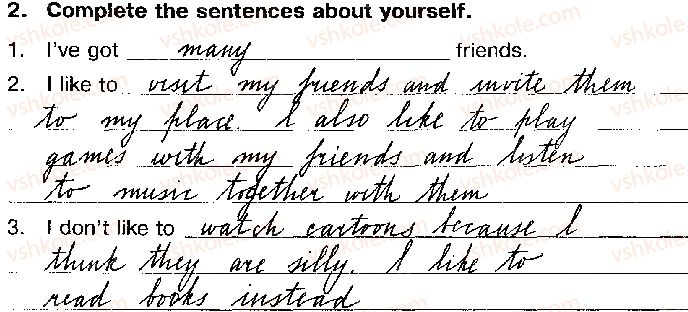 2. Complete the sentences about yourself.
1. I've got many friends.
2. I like to visit my friends and invite them
to my place. I also like to play
games with my friends and listen
to music together with them
3. I don't like to watch cartoons because I
think they are silly. I like to
read books instead